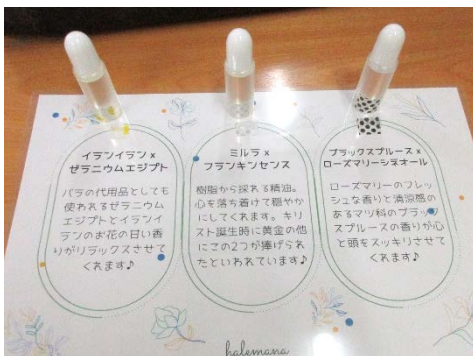 イランイラン x
ゼラニウムエジプト
バラの代用品としても
使われるゼラニウム
エジプトとイランイ
ランのお花の甘い香
りがリラックスさせて
くれます♪
ミルラ x
フランキンセンス
樹脂から採れる精油。
心を落ち着けて穏やか
にしてくれます。キリ
スト誕生時に黄金の他
にこの2つが捧げられ
たといわれています♪
ブラックスプルース x
ローズマリーシネオール
ローズマリーのフレッ
シュな香りと清涼感の
あるマツ科のブラック
スプルースの香りが心
と頭をスッキリさせて
くれます♪
halemana